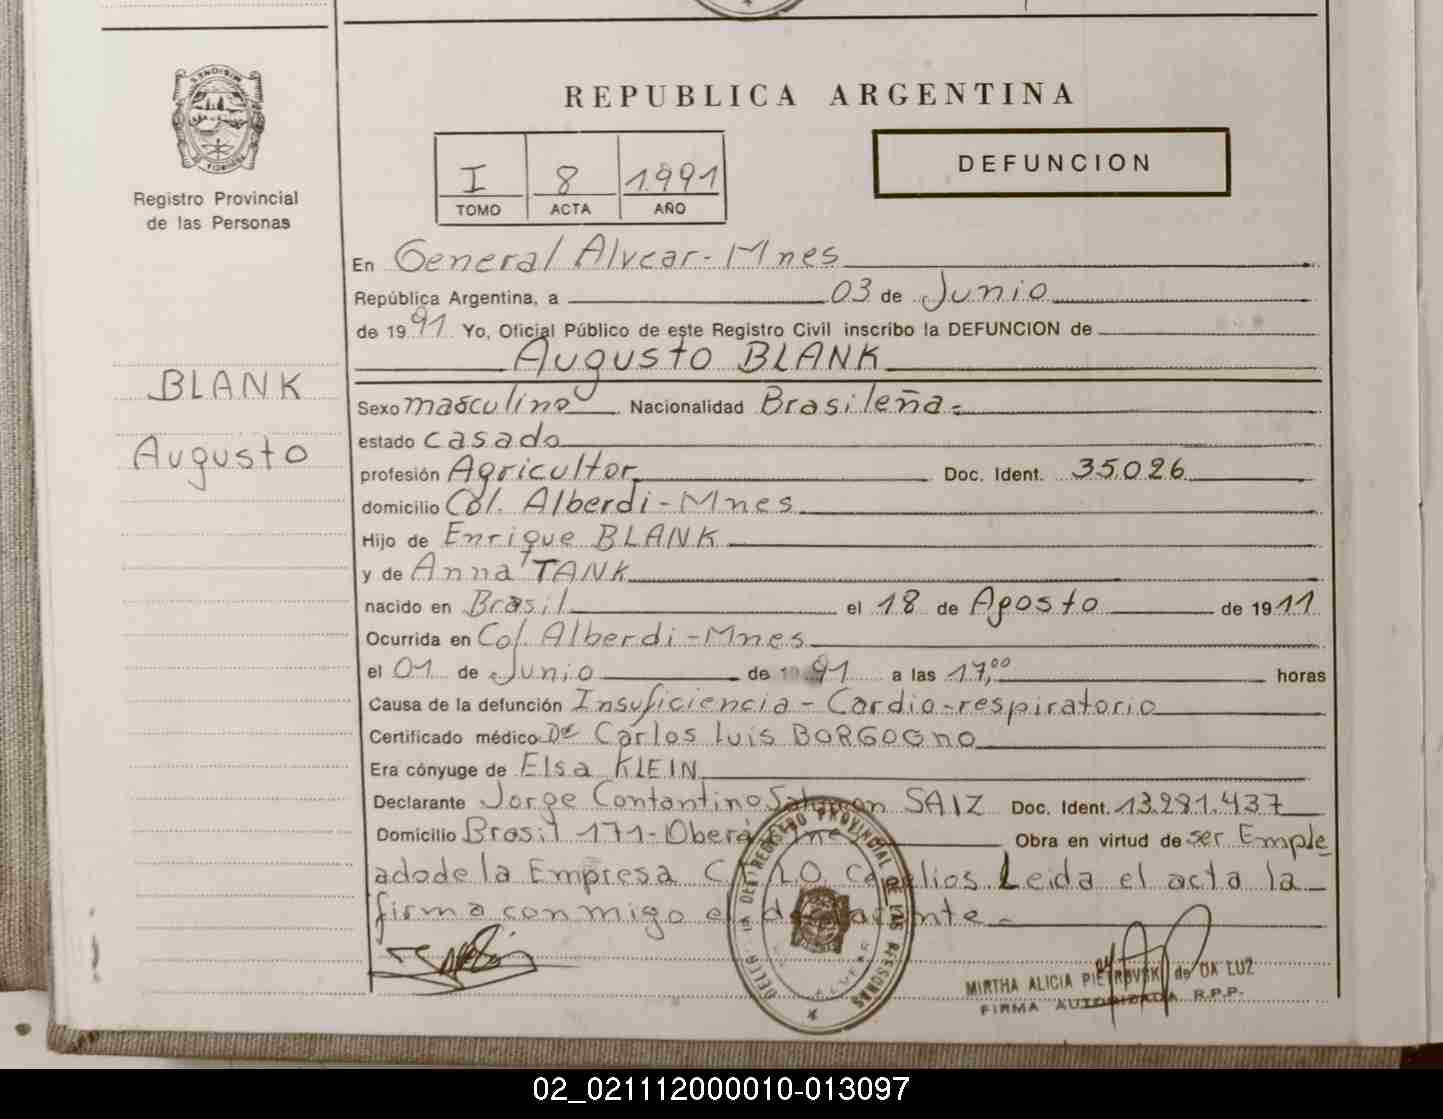 REPUBLICA ARGENTINA
MISIONES
PROVINCIA
Registro Provincial
de las Personas
DEFUNCION
I 8 1991
TOMO ACTA AÑO
En General Alvear - Mnes
República Argentina, a 03 de Junio
de 1991 Yo, Oficial Público de este Registro Civil inscribo la DEFUNCION de
Augusto BLANK
BLANK
Augusto
Sexo masculino Nacionalidad Brasileña.
estado casado
profesión Agricultor Doc. Ident. 35.026
domicilio Col. Alberdi - Mnes
Hijo de Enrique BLANK
y de Anna TANK
nacido en Brasil el 18 de Agosto de 1911
Ocurrida en Col. Alberdi - Mnes
el 01 de Junio de 1991 a las 17,00 horas
Causa de la defunción Insuficiencia - Cardio-respiratorio
Certificado médico Dr Carlos Luis BORGOGNO
Era cónyuge de Elsa KLEIN
Declarante Jorge Contantino SAIZ Doc. Ident. 13.281.437
Domicilio Brasil 171 - Oberá Obra en virtud de ser Emple
ado de la Empresa Leida el acta la
firma conmigo el
REGISTRO PROVINCIAL DE LAS PERSONAS
ALVEAR
MIRTHA ALICIA de DA LUZ
FIRMA AUTORIZADA R.P.P.
02_021112000010-013097